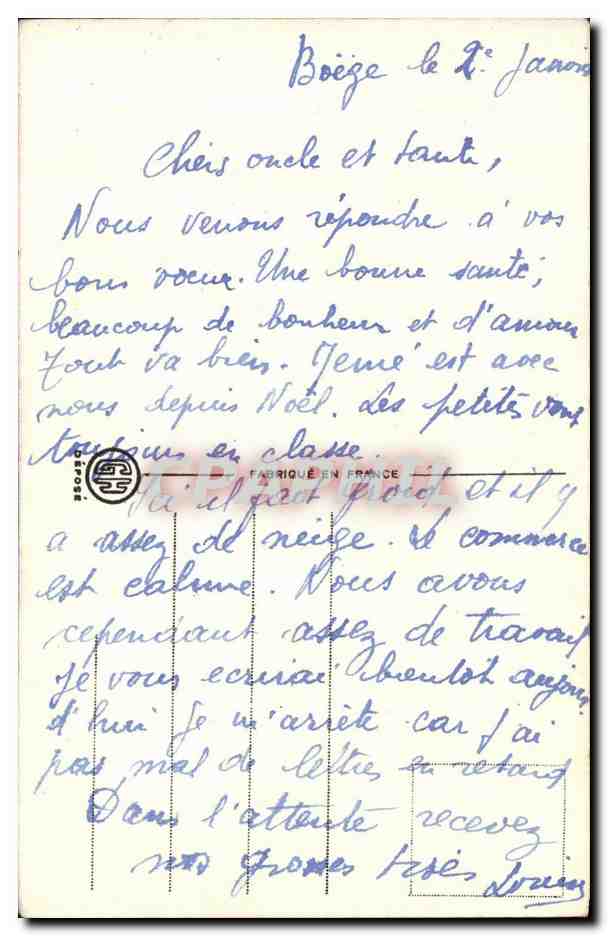 Boëge le 2e
Chers oncle et tante,
Nous venons répondre à vos
bons voeux. Une bonne santé,
beaucoup de bonheur et d'amour
Tout va bien. Mémé est avec
nous depuis Noël. Les petites vont
toujours en classe.
DÉPOSÉ
FABRIQUÉ EN FRANCE
Ici il fait froid, et il y
a assez de neige. Le commerce
est calme. Nous avons
cependant assez de travail
Je vous ecrirai bientôt aujour
d'hui je m'arrête car j'ai
pas mal de lettres en retard
Dans l'attente recevez
nos grosses